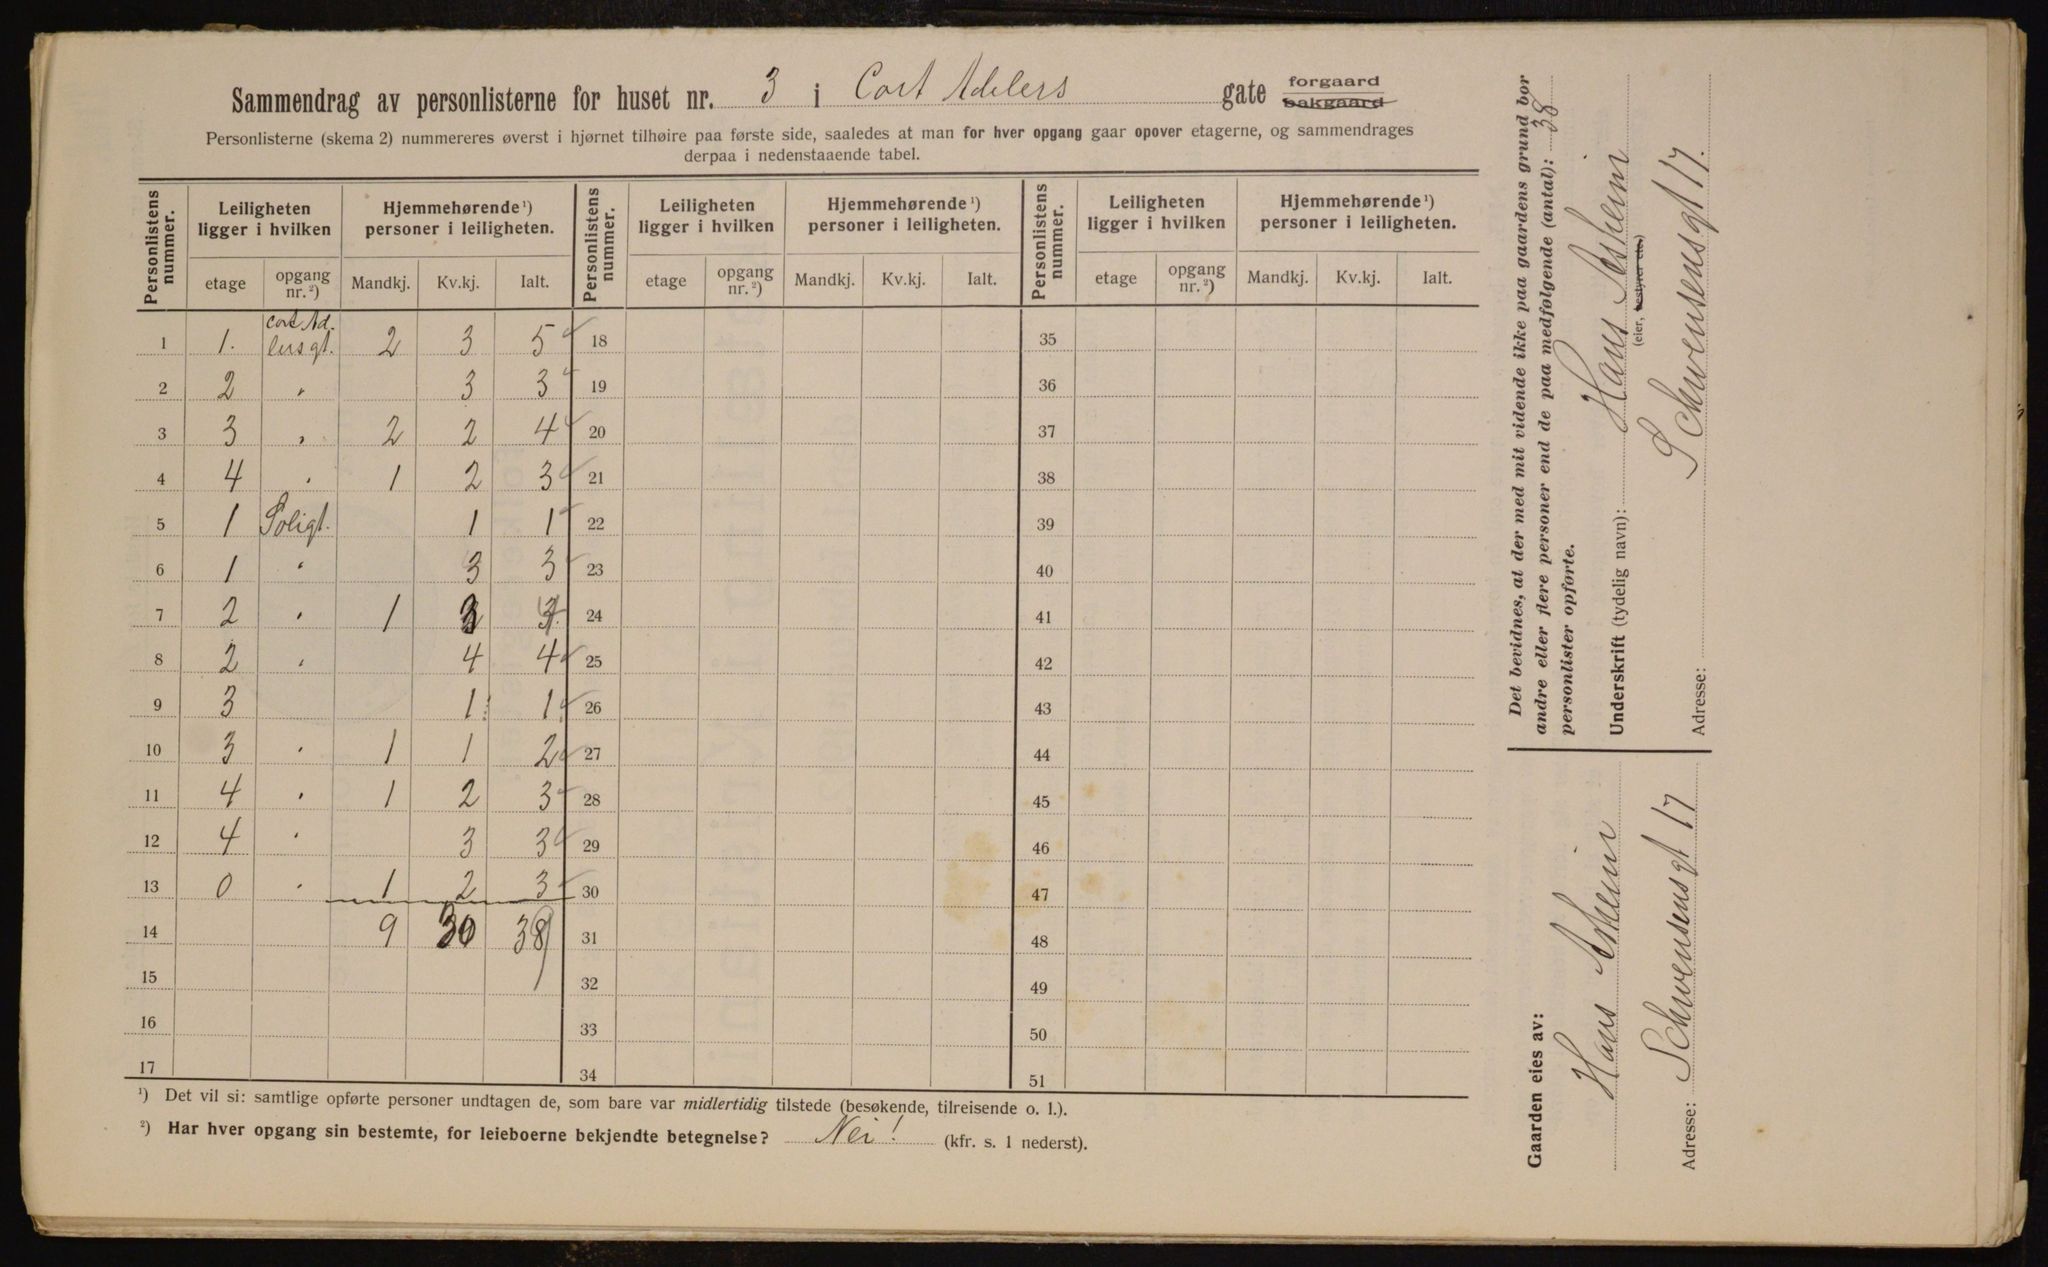 Sammendrag av personlisterne for huset nr. 3 i Cort Adelers gate forgaard bakgaard
Personlisterne (skema 2) nummereres øverst i hjørnet tilhøire paa første side, saaledes at man for hver opgang gaar opover etagerne, og sammendrages
derpaa i nedenstaaende tabel.
Personlistens nummer. Leiligheten ligger i hvilken Hjemmehørende ¹) personer i leiligheten. Personlistens nummer. Leiligheten ligger i hvilken Hjemmehørende ¹) personer i leiligheten. Personlistens nummer. Leiligheten ligger i hvilken Hjemmehørende ¹) personer i leiligheten.
etage opgang nr. ²) Mandkj. Kv.kj. Ialt. etage opgang nr. ²) Mandkj. Kv.kj. Ialt. etage opgang nr. ²) Mandkj. Kv.kj. Ialt.
1 1. Cort Ad. lersgt. 2 3 5 18 35
2 2 " 3 3 19 36
3 3 " 2 2 4 20 37
4 4 " 1 2 3 21 38
5 1 Soligt. 1 1 22 39
6 1 " 3 3 23 40
7 2 " 1 24 41
8 2 " 4 4 25 42
9 3 1 1 26 43
10 3 " 1 1 2 27 44
11 4 " 1 2 3 28 45
12 4 " 3 3 29 46
13 0 " 1 2 3 30 47
14 9 30 31 48
15 32 49
16 33 50
17 34 51
¹) Det vil si: samtlige opførte personer undtagen de, som bare var midlertidig tilstede (besøkende, tilreisende o. l.).
²) Har hver opgang sin bestemte, for leieboerne bekjendte betegnelse? Nei! (kfr. s. 1 nederst).
Det bevidnes, at der med mit vidende ikke paa gaardens grund bor
andre eller flere personer end de paa medfølgende (antal): 38
personlister opførte.
Underskrift (tydelig navn): Hans Askeim
(eier, bestyrer etc.)
Adresse: Schwensensgt 17.
Gaarden eies av:
Hans Askeim
Adresse: Schwensensgt 17